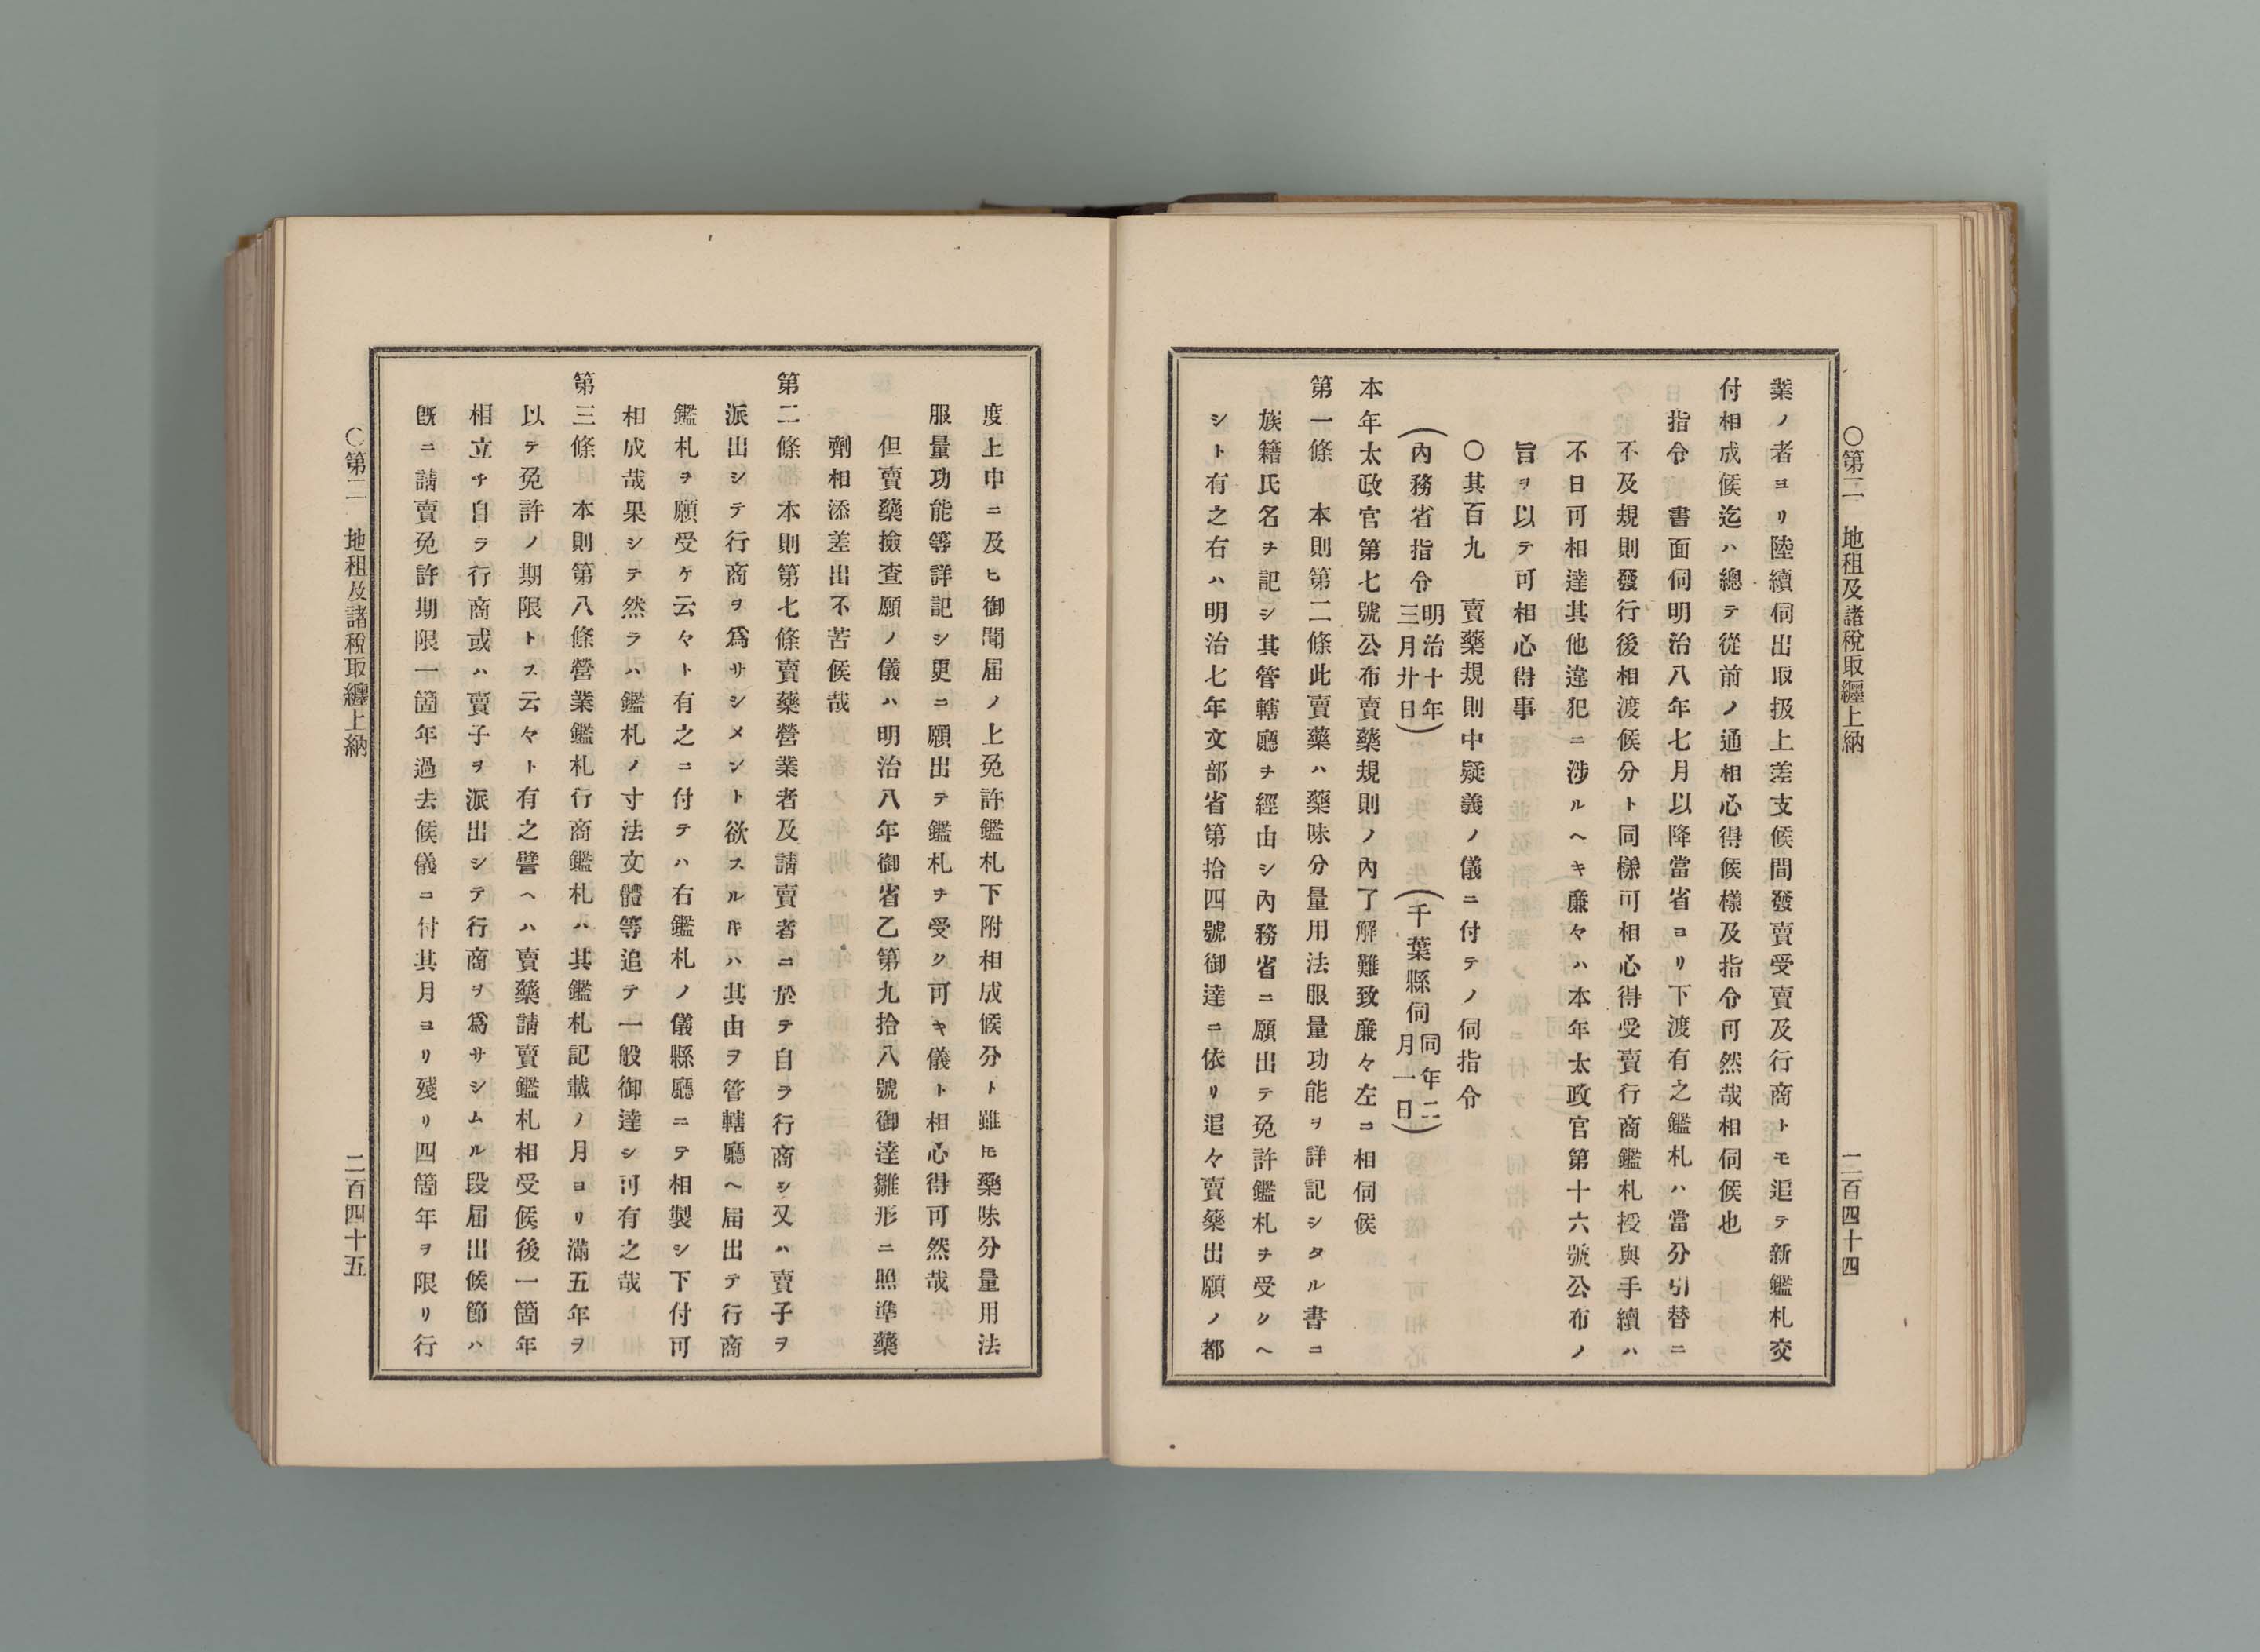 〇第二　地租及諸稅取纒上納
二百四十四
業ノ者ヨリ陸續伺出取扱上差支候間發賣受賣及行商トモ追テ新鑑札交
付相成候迄ハ總テ從前ノ通相心得候樣及指令可然哉相伺候也
指令　書面伺明治八年七月以降當省ヨリ下渡有之鑑札ハ當分引替ニ
不及規則發行後相渡候分ト同樣可相心得受賣行商鑑札授與手續ハ
不日可相達其他違犯ニ涉ルヘキ廉々ハ本年太政官第十六號公布ノ
旨ヲ以テ可相心得事
〇其百九　賣藥規則中疑義ノ儀ニ付テノ伺指令
（內務省指令明治十年三月廿日）　（千葉縣伺同年二月一日）
本年太政官第七號公布賣藥規則ノ內了解難致廉々左ニ相伺候
第一條　本則第二條此賣藥ハ藥味分量用法服量功能ヲ詳記シタル書ニ
族籍氏名ヲ記シ其管轄廳ヲ經由シ內務省ニ願出テ免許鑑札ヲ受クヘ
シト有之右ハ明治七年文部省第拾四號御達ニ依リ追々賣藥出願ノ都
度上申ニ及ヒ御聞届ノ上免許鑑札下附相成候分ト雖𪜈藥味分量用法
服量功能等詳記シ更ニ願出テ鑑札ヲ受ク可キ儀ト相心得可然哉
但賣藥撿査願ノ儀ハ明治八年御省乙第九拾八號御達雛形ニ照準藥
劑相添差出不苦候哉
第二條　本則第七條賣藥營業者及請賣者ニ於テ自ラ行商シ又ハ賣子ヲ
派出シテ行商ヲ爲サシメント欲スル𬼀ハ其由ヲ管轄廳ヘ届出テ行商
鑑札ヲ願受ケ云々ト有之ニ付テハ右鑑札ノ儀縣廳ニテ相製シ下付可
相成哉果シテ然ラハ鑑札ノ寸法文體等追テ一般御達シ可有之哉
第三條　本則第八條營業鑑札行商鑑札ハ其鑑札記載ノ月ヨリ滿五年ヲ
以テ免許ノ期限トス云々ト有之譬ヘハ賣藥請賣鑑札相受候後一箇年
相立チ自ラ行商或ハ賣子ヲ派出シテ行商ヲ爲サシムル段届出候節ハ
旣ニ請賣免許期限一箇年過去候儀ニ付其月ヨリ殘リ四箇年ヲ限リ行
〇第二　地租及諸稅取纒上納
二百四十五